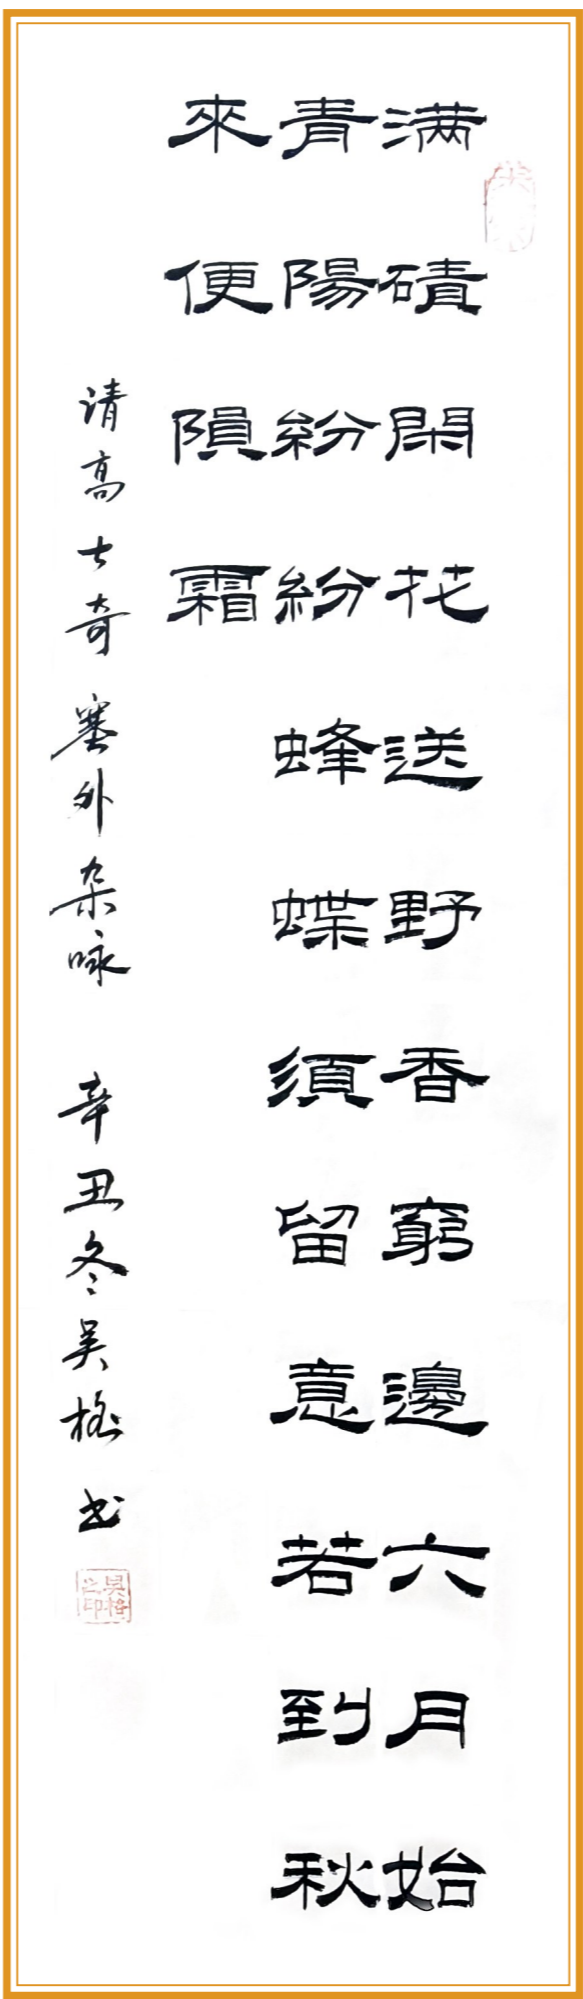 满磧閑花送野香窮邊六月始
青陽紛紛蜂蝶須留意若到秋
來便隕霜
请高士奇塞外杂咏 辛丑冬吴格书
吴格之印